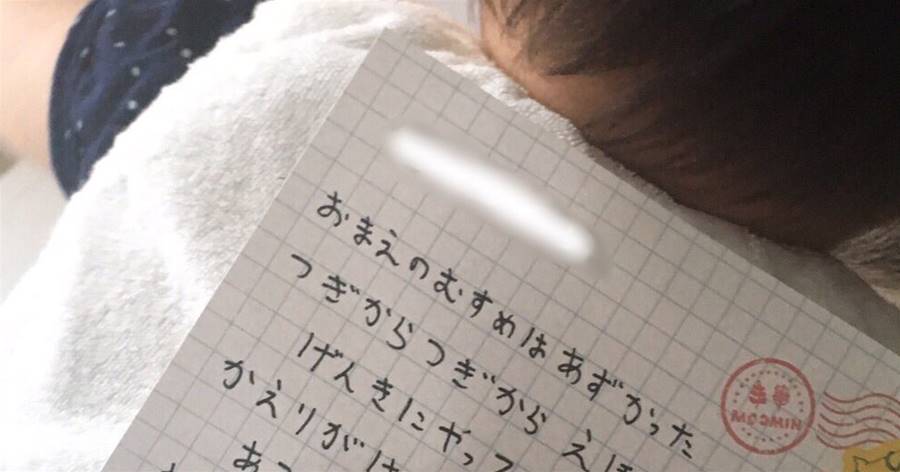 おまえのむすめはあずかった
つぎからつぎから えほ
げんきにやって
かえりがけ
あ